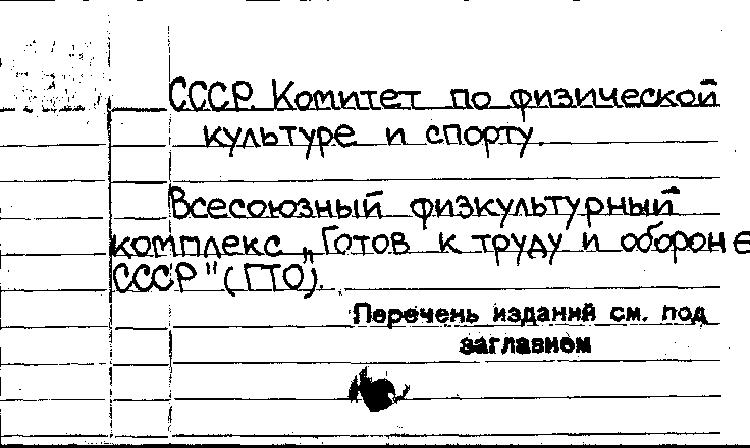 СССР. Комитет по физической
культуре и спорту.
Всесоюзный физкультурный
комплекс „Готов к труду и обороне
СССР" (ГТО).
Перечень изданий см. под
заглавием